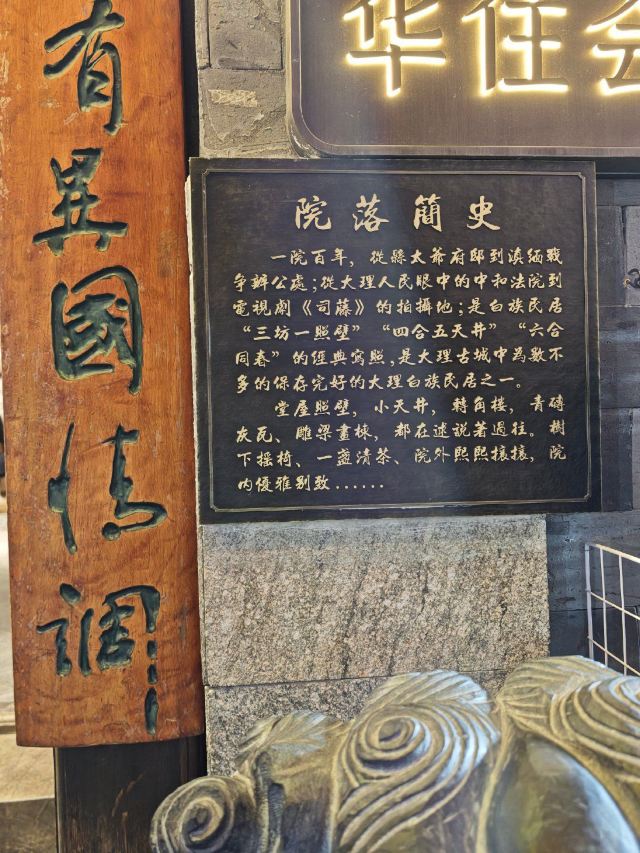 有異國情調
华住会
院落簡史
一院百年，從縣太爺府邸到滇緬戰
争辦公處；從大理人民眼中的中和法院到
電視劇《司藤》的拍攝地；是白族民居
“三坊一照壁”“四合五天井”“六合
同春”的經典寫照，是大理古城中為數不
多的保存完好的大理白族民居之一。
堂屋照壁，小天井，轉角樓，青磚
灰瓦、雕梁畫棟，都在述說著過往。樹
下摇椅、一盞清茶、院外熙熙攘攘，院
内優雅别致......